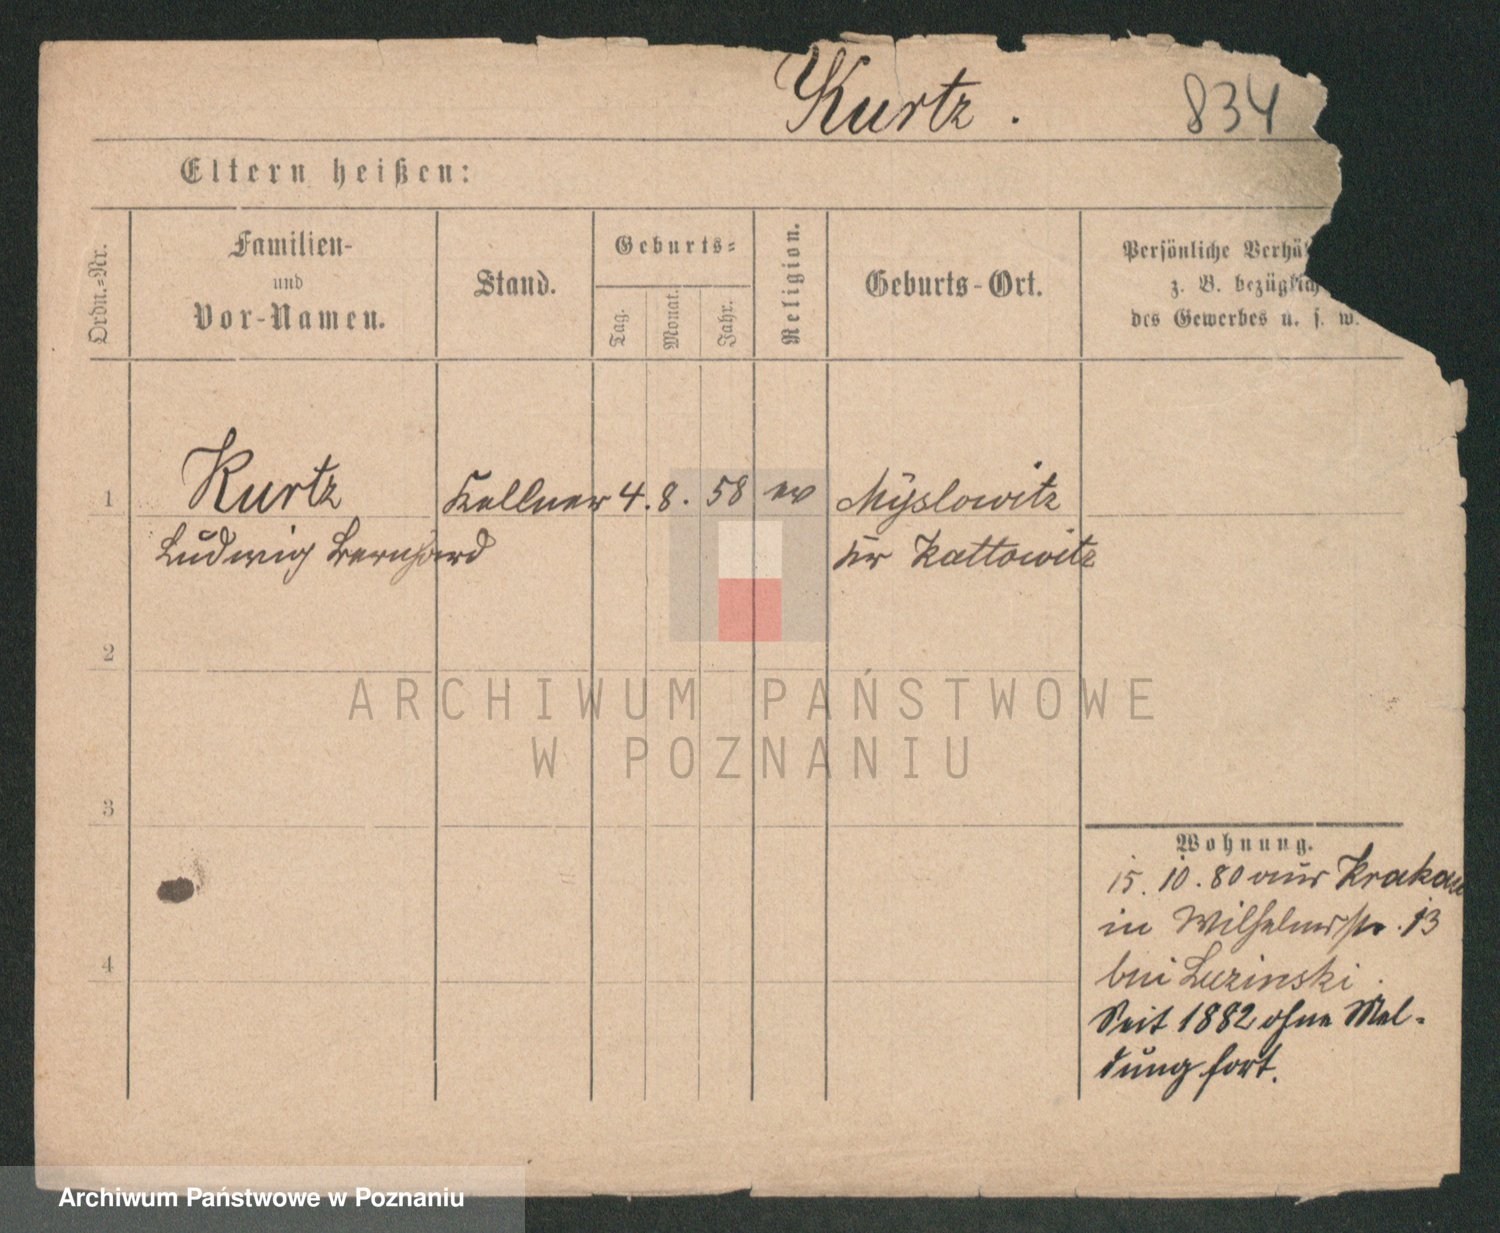 Kurtz.
834
Eltern heißen:
Ordn.-Nr.
Familien-
und
Vor-Namen.
Stand.
Geburts-
Tag.
Monat.
Jahr.
Religion.
Geburts-Ort.
Persönliche Verhä
z. B. bezüglich
des Gewerbes u. s. w.
1
Kurtz
Kellner
4. 8. 58
ev
Myslowitz
Ludwig Bernhard
Kr Kattowitz
2
3
4
Wohnung.
15. 10. 80 aus Krakau
in Wilhelmstr. 13
bei Luzinski.
Seit 1882 ohne Mel-
dung fort.
ARCHIWUM PAŃSTWOWE
W POZNANIU
Archiwum Państwowe w Poznaniu